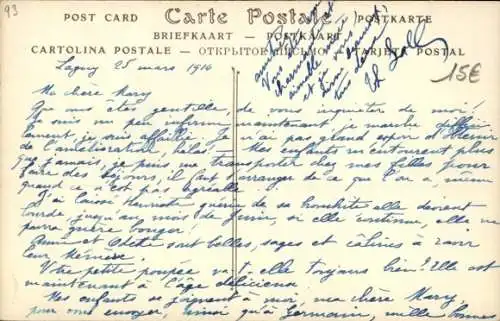 93
POST CARD Carte Postale POSTKARTE
BRIEFKAART — POSTKAART
CARTOLINA POSTALE — ОТКРЫТОЕ ПИСЬМО — TARJETA POSTAL
15€
Lagny 25 mars 1916
Ma chère Mary
Que vous êtes gentille, de vous inquiéter de moi!
Je suis un peu infirme maintenant, je marche
je suis affaiblie. Je n'ai pas grand espoir d'obtenir
de l'amélioration hélas — Mes enfants m'entourent plus
que jamais, je puis me transporter chez mes filles pour
faire des séjours, il faut s'arranger de ce que l'on a, même
quand ce n'est pas agréable.
J'ai laissé Henriette guérie de sa bronchite elle devient
lourde, jusqu'au mois de Juin, si elle continue, elle ne
pourra guère bouger!
et Odette sont belles, sages et câlines à ravir
leur
Votre petite poupée va-t-elle toujours bien? Elle est
maintenant à l'âge délicieux
Mes enfants se joignent à moi, ma chère Mary,
pour vous envoyer, ainsi qu'à Germain, mille bonnes
Vous
charmante
aimable
et je